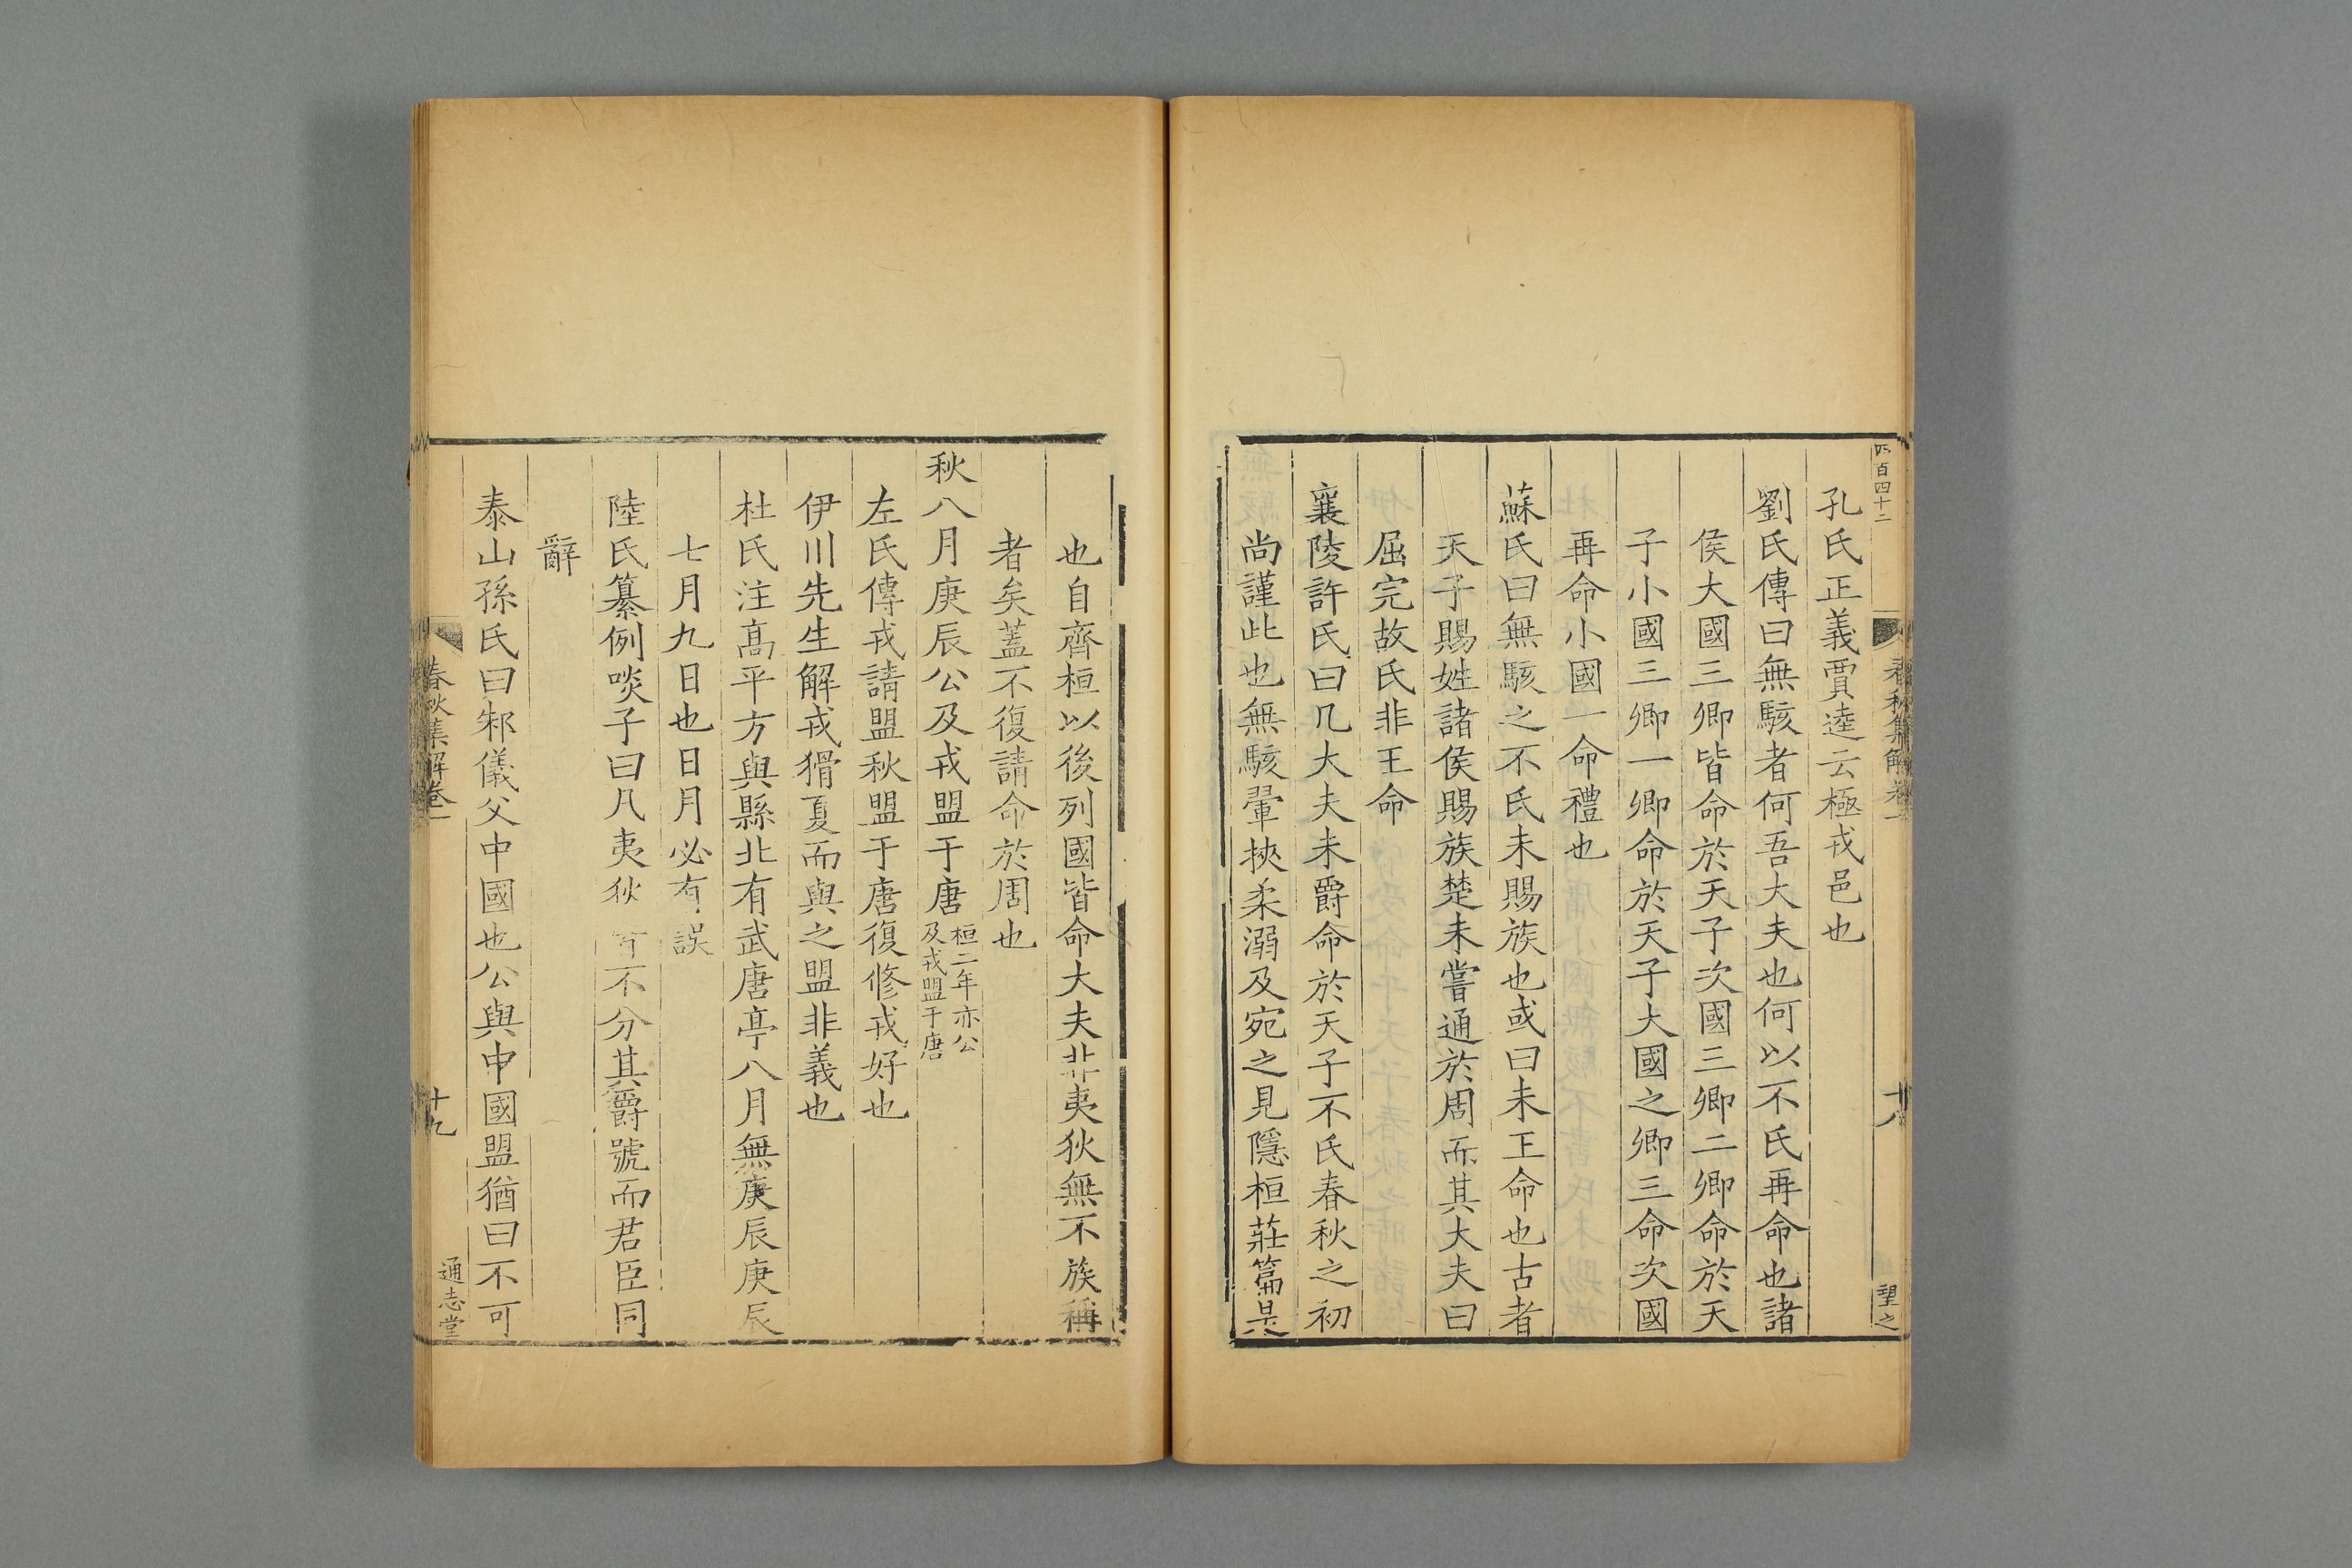 四百四十二
春秋集解卷一
十八
望之
孔氏正義賈逵云極戎邑也
劉氏傳曰無駭者何吾大夫也何以不氏再命也諸
侯大國三卿皆命於天子次國三卿二卿命於天
子小國三卿一卿命於天子大國之卿三命次國
再命小國一命禮也
蘇氏曰無駭之不氏未賜族也或曰未王命也古者
天子賜姓諸侯賜族楚未嘗通於周而其大夫曰
屈完故氏非王命
襄陵許氏曰凡大夫未爵命於天子不氏春秋之初
尚謹此也無駭翬挾柔溺及宛之見隱桓莊篇是
也自齊桓以後列國皆命大夫非夷狄無不族稱
者矣蓋不復請命於周也
秋八月庚辰公及戎盟于唐
桓二年亦公
及戎盟于唐
左氏傳戎請盟秋盟于唐復修戎好也
伊川先生解戎猾夏而與之盟非義也
杜氏注高平方與縣北有武唐亭八月無庚辰庚辰
七月九日也日月必有誤
陸氏纂例啖子曰凡夷狄皆不分其爵號而君臣同
辭
泰山孫氏曰邾儀父中國也公與中國盟猶曰不可
春秋集解卷一
十九
通志堂